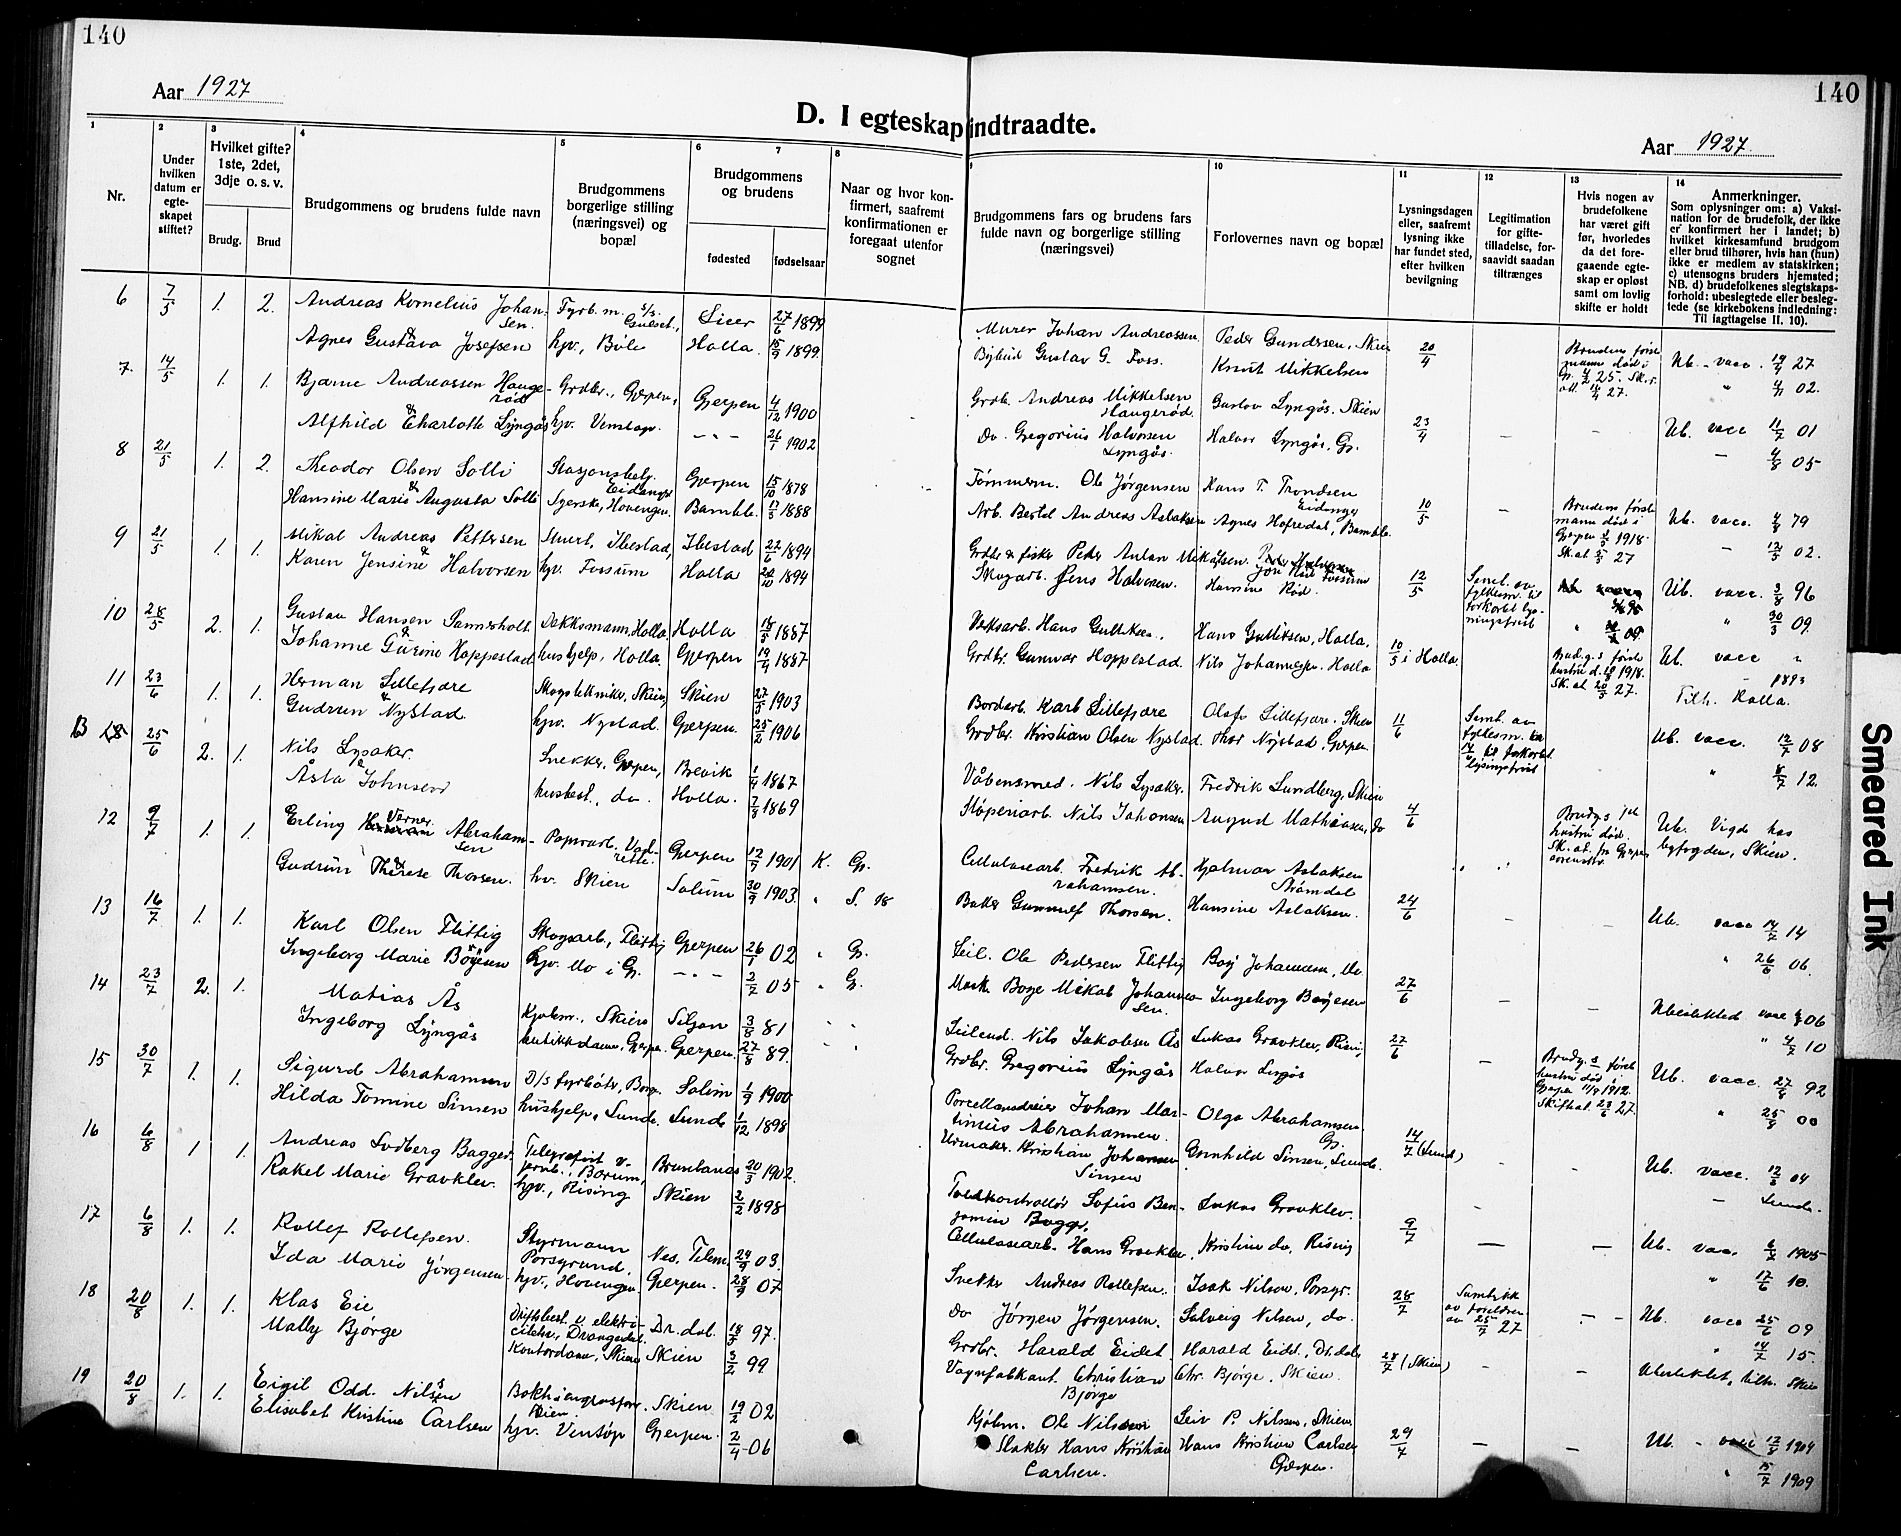 140
140
Aar 1927
D. I egteskap indtraadte.
Aar 1927.
1
Nr.
2
Under
hvilken
datum er
egte-
skapet
stiftet?
3
Hvilket gifte?
1ste, 2det,
3dje o. s. v.
Brudg.
Brud
4
Brudgommens og brudens fulde navn
5
Brudgommens
borgerlige stilling
(næringsvei) og
bopæl
6
7
Brudgommens
og brudens
fødested
fødselsaar
8
Naar og hvor kon-
firmert, saafremt
konfirmationen er
foregaat utenfor
sognet
9
Brudgommens fars og brudens fars
fulde navn og borgerlige stilling
(næringsvei)
10
Forlovernes navn og bopæl
11
Lysningsdagen
eller, saafremt
lysning ikke
har fundet sted,
efter hvilken
bevilgning
12
Legitimation
for gifte-
tilladelse, for-
saavidt saadan
tiltrænges
13
Hvis nogen av
brudefolkene
har været gift
før, hvorledes
da det fore-
gaaende egte-
skap er opløst
samt om lovlig
skifte er holdt
14
Anmerkninger.
Som oplysninger om: a) Vaksi-
nation for de brudefolk, der ikke
er konfirmert her i landet; b)
hvilket kirkesamfund brudgom
eller brud tilhører, hvis han (hun)
ikke er medlem av statskirken;
c) utensogns bruders hjemsted;
NB. d) brudefolkenes slegtskaps-
forhold: ubeslegtede eller besleg-
tede (se kirkebokens indledning:
Til iagttagelse II. 10).
6 7/5 1. 2. Andreas Kornelius Johan-
sen. Fyrb. m. s/s Gulset, 27/6 1899 Murer Johan Andreassen Peder Gundersen, Skien 20/4
& Agnes Gustava Josefsen hjv, Bøle Holla. 15/9 1899. Bybud Gustav G. Foss. Knut Mikkelsen
Brudens første
mann død i
Gp. 4/2 25. Sk.
att. 27. Ub. - vacc. 27
" 02.
7 14/5 1. 1. Bjarne Andreassen Hauge-
rød Grdbr., Gjerpen, Gjerpen 4/12 1900 Grdb. Andreas Mikkelsen
Haugerød. Gustav Lyngås. Skien 23/4 - - Ub. vacc 11/7 01
& Alfhild Charlotte Lyngås hjv. Venstøp. - " - 26/1 1902 Do. Gregorius Halvorsen
Lyngås. Halvor Lyngås, Gp. - 4/8 05
8 21/5 1. 2. Theodor Olsen Solli Stasjonsbetj.
Eidanger Gjerpen 15/10 1878 Tømmerm. Ole Jørgensen Hans T. Trondsen
Eidanger 10/5 - Ub. vacc. 79
& Hansine Marie Augusta Solli Syerske, Hovengen. Bamble. 1888 Arb. Bertel Andreas Aslaksen Agnes Hofredal, Bamble. - 02.
Brudens første
mann død i
Gjerpen 1918.
Sk. at. 27
9 21/5 1. 1. Mikal Andreas Pettersen Murert, Ibestad, Ibestad 22/6 1894 Grdbr & fisker Peder Anton Mikalsen. 12/5
& Karen Jensine Halvorsen hjv. Fossum Holla 20/10 1894 Skogarb. Jens Halvorsen. Hansine Rød.
Seml. av
fylkesm. til
forkortet lys-
ningsfrist
Ub. vacc. 3/8 96
" 30/3 09.
10 28/5 2. 1. Gustav Hansen Sannesholt Dekksmann, Holla, Holla 18/5 1887 Verksarb. Hans Gulliksen, Hans Gulliksen, Holla. 10/5 i Holla.
& Johanne Gurine Hoppestad hushjelp, Holla. Gjerpen 19/4 1887 Grdbr. Gunnar Hoppestad. Nils Johannesen. Holla
Brudg.s første
hustru d. 1918.
Sk. at. 20/5 27.
Ub. vacc "
" 1893
Tilh. Holla.
11 23/6 1. 1. Herman Lillefjære Skogstekniker, Skien, Skien 27/5 1903 Bordarb. Karl Lillefjære Olaf Lillefjære. Skien 11/6
& Gudrun Nystad hjv. Nystad. Gjerpen. 25/2 1906 Grdbr. Kristian Olsen Nystad. Thor Nystad, Gjerpen.
Seml. av
fylkesm.
til forkortet
lysingsfrist
Ub. vacc. 12/7 08
" 8/7 12.
B 25/6 2. 1. Nils Lysaker. Snekker, Gjerpen, Brevik 1/4 1867 Våbensmed. Nils Lysaker. Fredrik Lundberg, Skien 4/6
& Åsta Johnsen husbest., do. Holla. 7/8 1869 Støperiarb. Nils Johansen, August Mathiesen, do
Brudg.s 1ste
hustru død.
Sk. at. fra Gjerpen
Ub. Vigd hos
byfogden, Skien.
12 9/7 1. 1. Erling Verner Abraham-
sen Papirarb. Vad-
rette Gjerpen 12/9 1901 K. Gp. Cellulosearb. Fredrik Ab-
rahamsen. Hjalmar Aslaksen
Strømdal 24/6 - - Ub. vacc 14/7 14
& Gudrun Therese Thorsen. hv. Skien Solum 30/9 1903. " S. 18 Baker Gunnulf Thorsen. Hansine Aslaksen. " 26/6 06.
13 16/7 1. 1. Karl Olsen Flittig Skogsarb., Flittig Gjerpen 26/1 02 " Gp. Leil. Ole Pedersen Flittig Borj Johannessen, Mo. 27/6 - - Ubeslekted vacc 06
Ingeborg Marie Børjesen hjv. Mo i Gp. - " - 2/7 05 " Gp. Mask. Borge Mikal Johannes-
sen. Ingeborg Borjesen " 4/7 10
14 23/7 2. 1. Matias Ås Kjøbm., Skien Siljan 3/8 81 " " Leilend. Nils Jakobsen Ås Lukas Gravklev, Rising, 27/6 - Ub. vacc. 27/8 92
Ingeborg Lyngås butikkdame, Gjerpen. Gjerpen. 27/8 89. " " Grdbr. Gregorius Lyngås Halvor Lyngås " 25/9 00
Brudg.s første
hustru død i
Gjerpen 11/9 1912.
Skifteat. 23/6 27.
15 30/7 1. 1. Sigurd Abrahamsen D/s fyrbøter, Borge Solum 1/9 1900 Porcellansdreier Johan Mar-
tinius Abrahamsen. Olga Abrahamsen
Gp. 14/7 (Lund) - - Ub. vacc. 12/6 04
Hilda Tomine Simsen hushjelp, Lunde. Lunde 1/12 1898 Urmaker Kristian Johansen
Simsen Gunhild Simsen, Lunde. - Lunde.
16 6/8 1 1. Andreas Svdberg Bagger Telegrafist v.
jernb., Bærum, Brunlanes 20/3 1902. Toldkontrollør Sofus Ben-
jamin Bagger, Lukas Gravklev. 9/7 - - Ub. vacc. 6/7 1905
Rakel Marie Gravklev. hjv., Rising Skien 2/2 1898 Cellulosearb. Hans Gravklev, Kristine do, Rising " 17/6 10.
17 6/8 1. 1. Rollef Rollefsen. Styrmann
Porsgrund, Nes, Telem. 24/9 03. Snekker Andreas Rollefsen. Isak Nilsen, Porsgr. 28/7
Ida Marie Jørgensen hjv., Hovengen Gjerpen. 28/9 07 Do Jørgen Jørgensen. Solveig Nilsen, do.
Samtykke
av foreldre
av 25/7 27
- - Ub. vacc 25/6 09
" 14/7 15.
18 20/8 1. 1. Klas Eie Driftsbest. v. elektri-
citetsv., Drangedal Dr.dal. 18/7 97. Grdbr. Harald Eidet. Harald Eidet, Dr.dal 28/7 (Skien) - - Ubeslektet, tilh. Skien
Mally Bjørge Kontordame, Skien Skien 3/2 99 Vognfabrikant Christian
Bjørge Chr. Bjørge, Skien.
19 20/8 1. 1. Eigil Odd. Nilsen Bokhandlersfort.
Skien. Skien 19/2 02 Kjøbm. Ole Nilssen Leiv P. Nilssen, Skien. 29/7 - - Ub. - vacc 12/8 1904
Elisabet Kristine Carlsen hjv. Venstøp Gjerpen. 2/4 06 Slakter Hans Kristian
Carlsen. Hans Kristian Carlsen
Gjerpen. " 15/7 1909
Smeared Ink